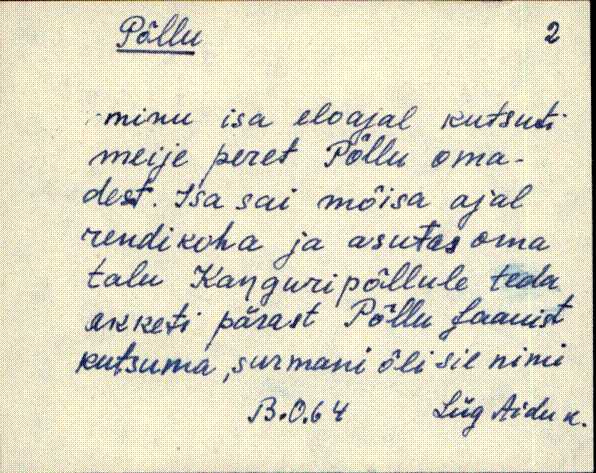 Põllu 2
minu isa eloajal kutsuti
meije peret Põllu oma-
dest. Isa sai mõisa ajal
rendikoha ja asutas oma
talu Kaŋguripõllule teda
akketi pärast Põllu Jaanist
kutsuma, surmani õli sie nimi
B.O.64 Lüg Aidu k.